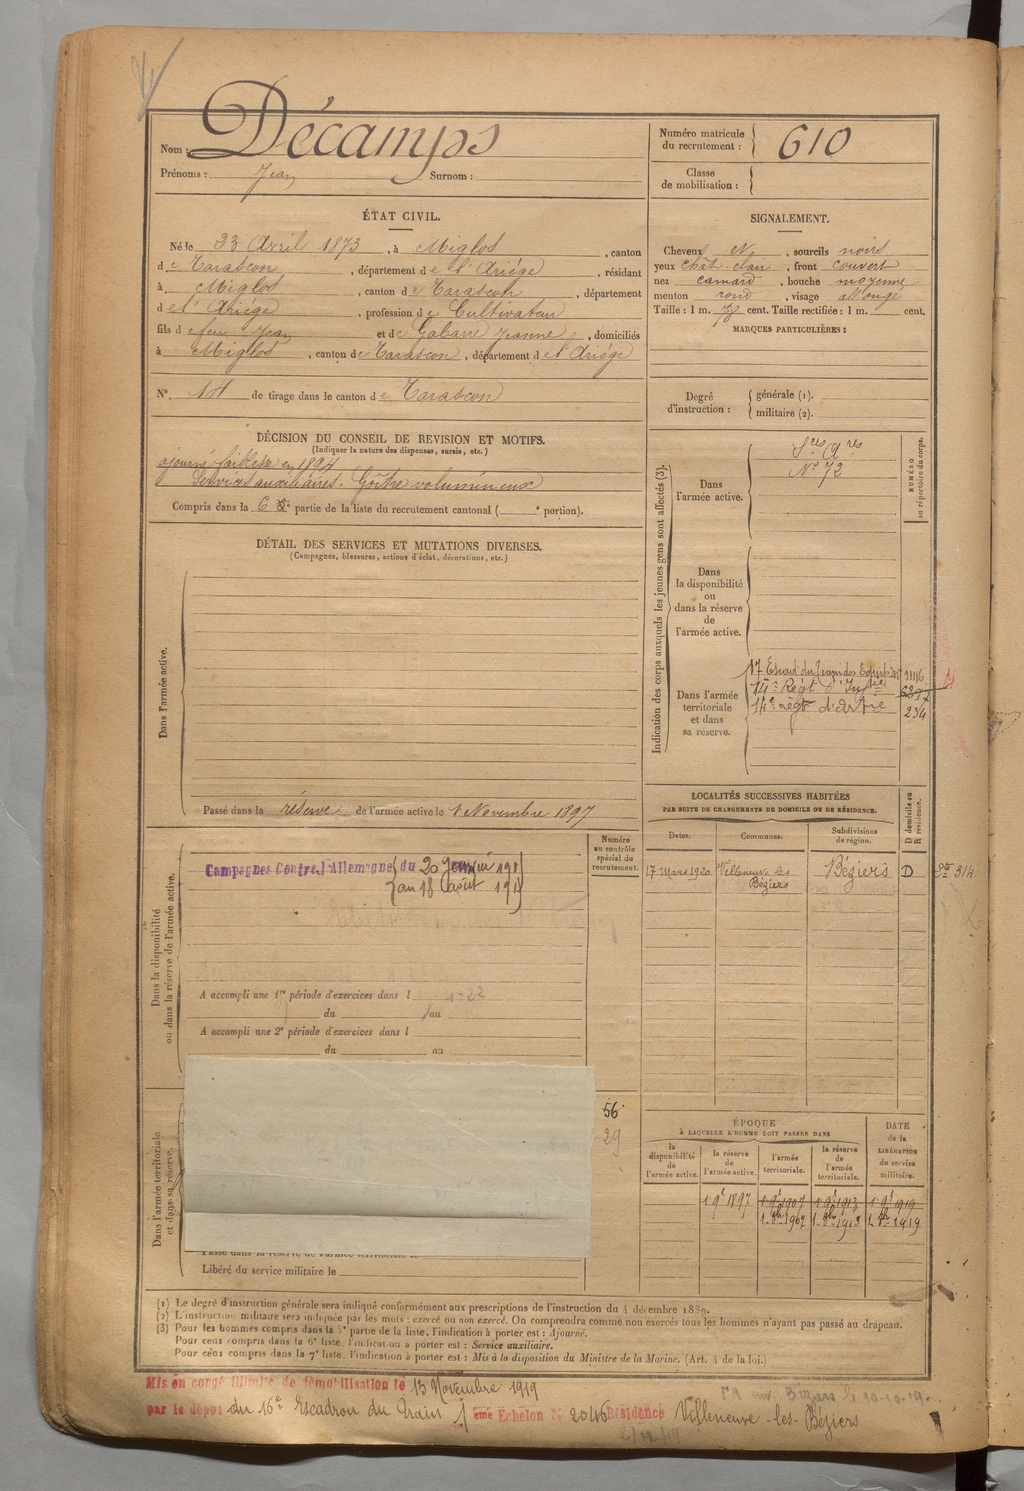 Nom : Décamps
Prénoms : Jean Surnom :
Numéro matricule du recrutement : 610
Classe de mobilisation :
ÉTAT CIVIL.
Né le 23 Avril 1873, à Miglos, canton
de Tarascon, département de l'Ariége, résidant
à Miglos, canton de Tarascon, département
de l'Ariége, profession de Cultivateur
fils de feu Jean et de Gabarre Jeanne, domiciliés
à Miglos, canton de Tarascon, département de l'Ariége
N° 14 de tirage dans le canton de Tarascon
SIGNALEMENT.
Cheveux N, sourcils noirs
yeux chât. clair, front couvert
nez camard, bouche moyenne
menton rond, visage allongé
Taille : 1 m. cent. Taille rectifiée : 1 m. cent.
MARQUES PARTICULIÈRES :
Degré d'instruction : générale (1).
militaire (2).
DÉCISION DU CONSEIL DE REVISION ET MOTIFS.
(Indiquer la nature des dispenses, sursis, etc.)
ajourné faiblesse en 1894
Services auxiliaires. Goître volumineux
Compris dans la 6e partie de la liste du recrutement cantonal ( e portion).
DÉTAIL DES SERVICES ET MUTATIONS DIVERSES.
(Campagnes, blessures, actions d'éclat, décorations, etc.)
Dans l'armée active.
Passé dans la réserve de l'armée active le 1 Novembre 1897
Indication des corps auxquels les jeunes gens sont affectés (3).
NUMÉRO au répertoire du corps.
Dans l'armée active.
Sces Ares
N° 72
Dans la disponibilité ou dans la réserve de l'armée active.
Dans l'armée territoriale et dans sa réserve.
17 Escad. du Train des Equip. 1116
14e Régt d'Inf
14e régt d'Artie 234
LOCALITÉS SUCCESSIVES HABITÉES
PAR SUITE DE CHANGEMENTS DE DOMICILE OU DE RÉSIDENCE.
D domicile ou R résidence.
Dates. Communes. Subdivisions de région.
17 mars 1920 Villeneuve les Béziers Béziers D 314
Numéro au contrôle spécial du recrutement.
Dans la disponibilité ou dans la réserve de l'armée active.
Campagnes Contre l'Allemagne du 20 Janvier 191
au 18 août 191
A accompli une 1re période d'exercices dans l
du au
A accompli une 2e période d'exercices dans l
du au
Dans l'armée territoriale et dans sa réserve.
56
29
Passé dans la réserve de l'armée territoriale le
Libéré du service militaire le
ÉPOQUE
À LAQUELLE L'HOMME DOIT PASSER DANS
la disponibilité de l'armée active. la réserve de l'armée active. l'armée territoriale. la réserve de l'armée territoriale.
DATE de la LIBÉRATION du service militaire.
1 9e 1897 1 9e 1907 1 9e 1913 1 9e 1919
1 8bre 1907 1 8bre 1913 1 8bre 1919
(1) Le degré d'instruction générale sera indiqué conformément aux prescriptions de l'instruction du 4 décembre 1889.
(2) L'instruction militaire sera indiquée par les mots : exercé ou non exercé. On comprendra comme non exercés tous les hommes n'ayant pas passé au drapeau.
(3) Pour les hommes compris dans la 5e partie de la liste, l'indication à porter est : Ajourné.
Pour ceux compris dans la 6e liste, l'indication à porter est : Service auxiliaire.
Pour ceux compris dans la 7e liste, l'indication à porter est : Mis à la disposition du Ministre de la Marine. (Art. 4 de la loi.)
Mis en congé illimité de démobilisation le 13 Novembre 1919
par le dépôt du 16e Escadron du Train 1 eme Echelon N° 2046 Résidence Villeneuve-les-Béziers
Béziers le 10-10-19.